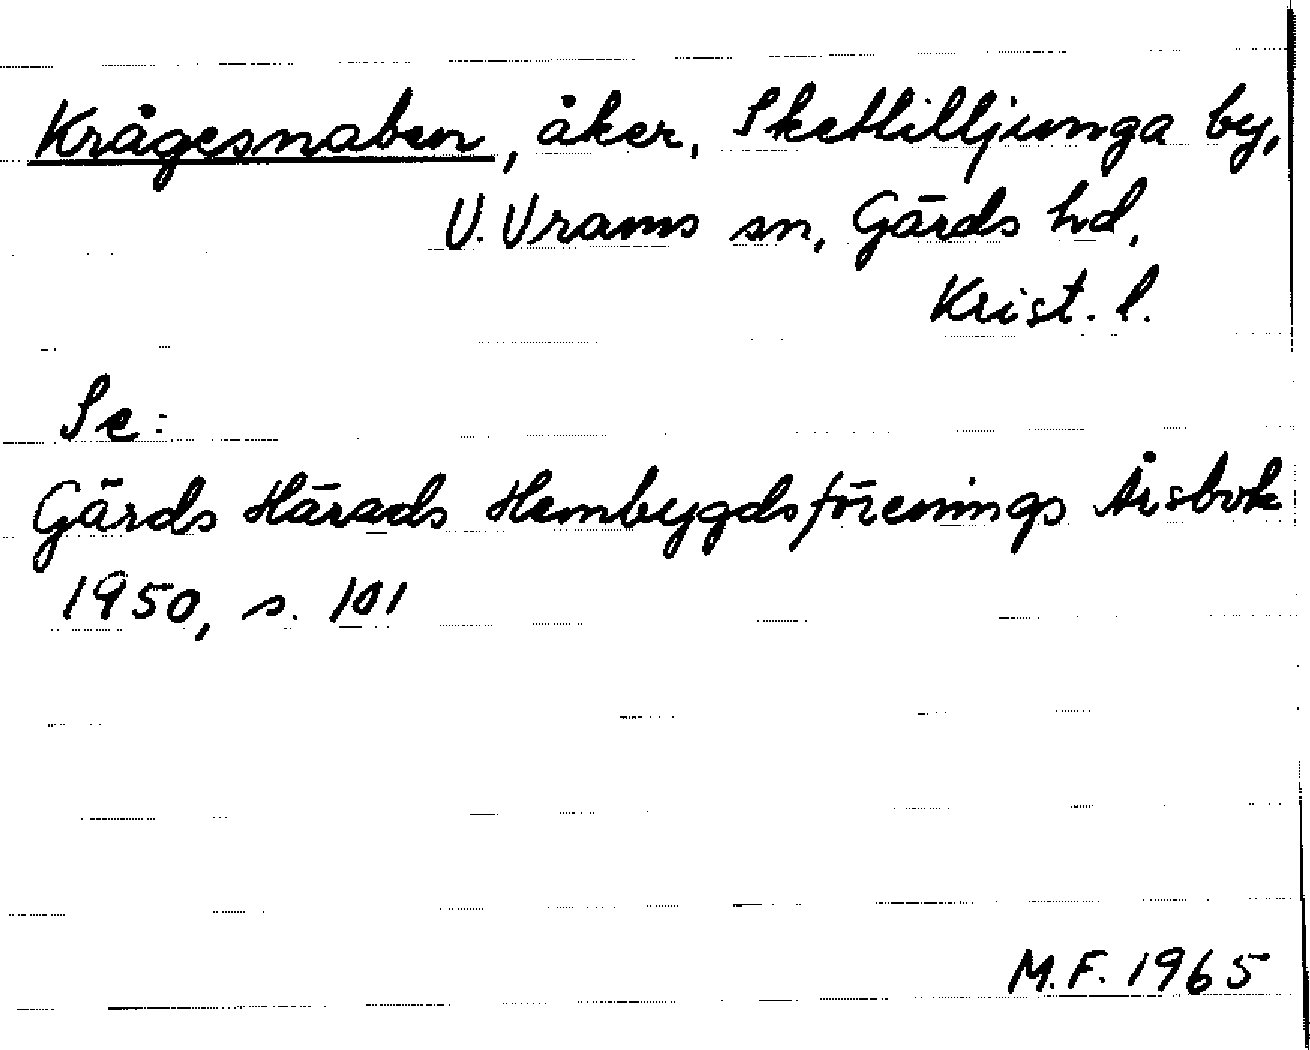 Krågesnaben, åker, Skettilljunga by,
V. Vrams sn, Gärds hd,
Krist. l.
Se:
Gärds Härads Hembygdsförenings Årsbok
1950, s. 101
M.F. 1965